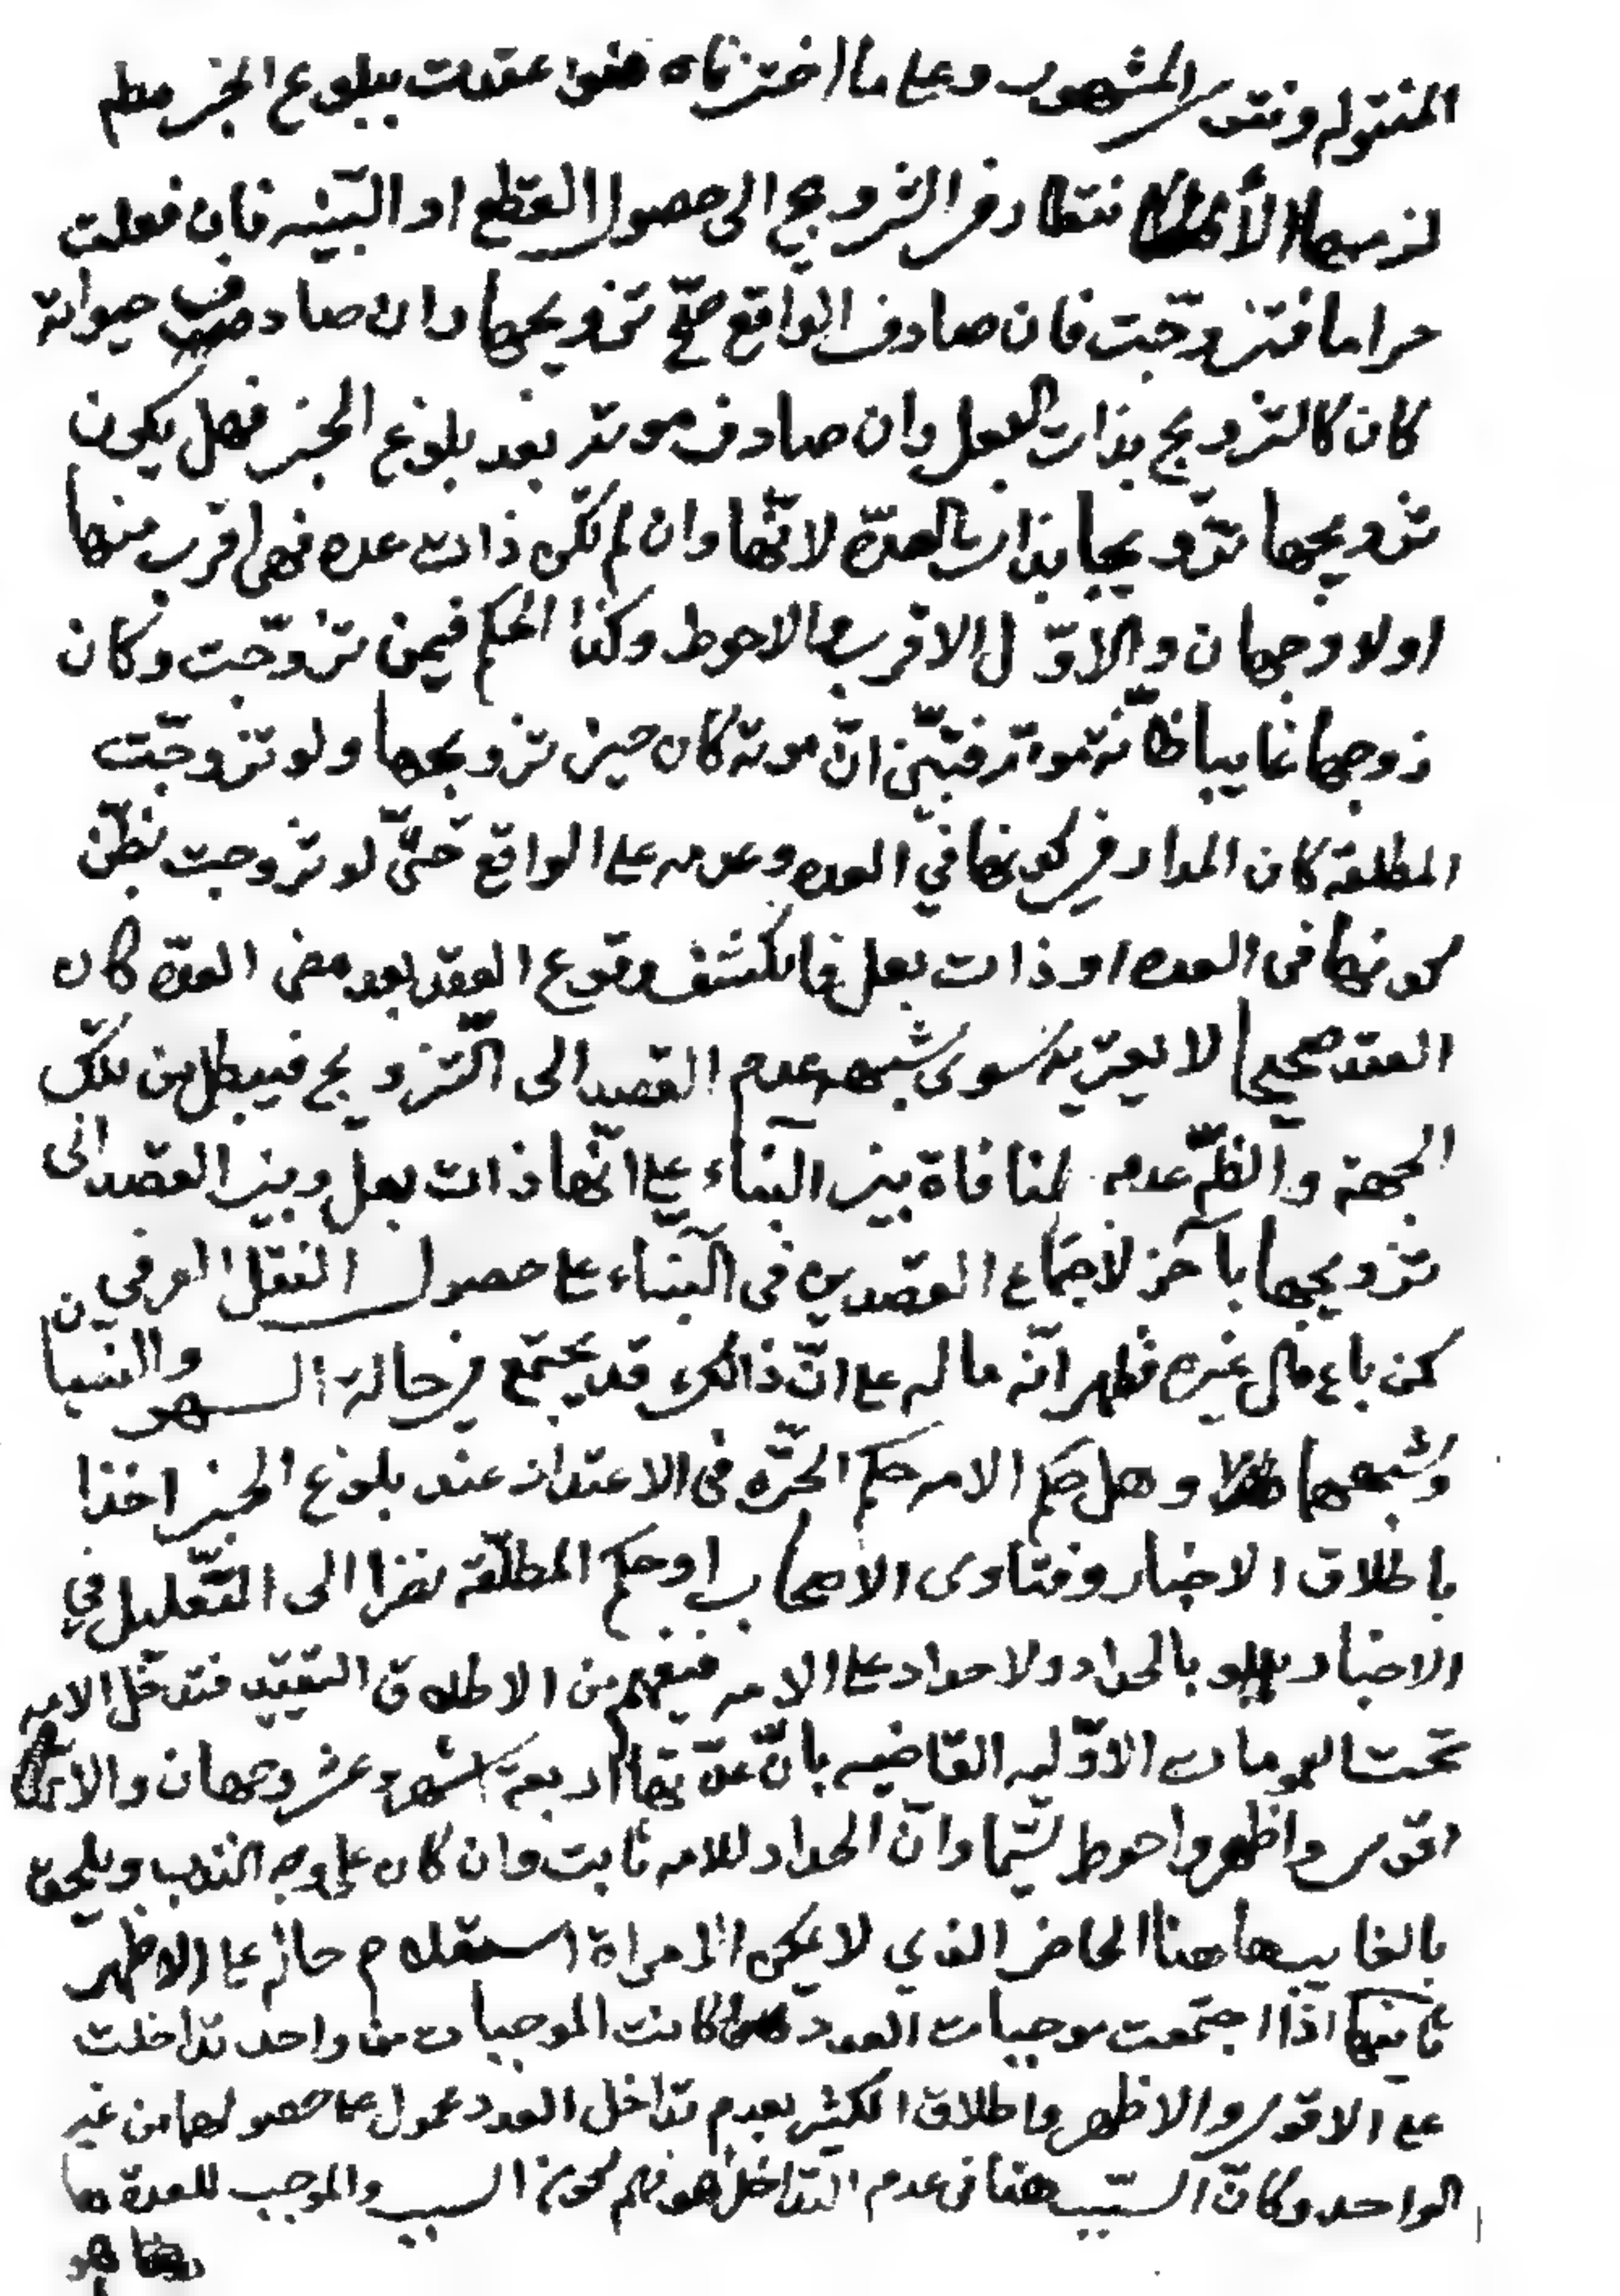 المنقوله وفتوى المشهور وعلى ما اخترناه فلو عقدت ببلوغ الخبر مطم
لزمها الأ نتظار في التزويج الى حصول القطع او البينه فان فعلت
حراما فتزوجت فان صادف الواقع صحّ تزويجها وان صادف حيواته
كان كالتزويج بذات البعل وان صادف موته بعد بلوغ الخبر فهل يكون
تزويجها تزويجا بذات العدّه لانّها وان لم تكن ذات عده فهي اقرب منها
اولا وجهان والاوّل الاقرب والاحوط وكذا الحكم فيمن تزوّجت وكان
زوجها غايبا ظانّه موته فتبيّن انّ موته كان حين تزويجها ولو تزوجّت
المطلقه كان المدار في كونها في العده وعدمه على الواقع حتّى لو تزوجت بظنّ
كونها في العده او ذات بعل فانكشف وقوع العقد بعد مضى العدّه كان
العقد صحيحا لا يعتريه سوى شبهه عدم القصد الى التّزويج فيبطل من تلك
الجهة والظّ عدمه لمنافاة بين البناء على انّها ذات بعل وبين القصد الى
تزويجها بآخر لأجتماع القصدين في البناء على حصول النقل العرفي
كمن باع مال غيره فظهر انّه ماله على انّ ذالك قد يجتمع في حالة السهو والنسيان
وشبههما وهل حكم الامه حكم الحرّه في الاعتداد عند بلوغ الخبر اخذا
باطلاق الاخبار وفتاوى الاصحاب او حكم المطلّقه نظرا الى التّعليل في
الاخبار بالحداد ولا حداد على الامه فيفهم من الاطلاق التقييد فتدخل الامه
تحت العمومات الاوّليه القاضيه بانّ عدّتها اربعة اشهر وعشر وجهان والاوّل
اقوى واظهر واحوط سيّما وانّ الحداد للامه ثابت وان كان على وجه الندب ويلحق
بالغايب هاهنا الحاضر الذي لا يمكن المراة استعلام حاله على الاظهر
ثانيها اذا اجتمعت موجبات العدد فان كانت الموجبات من واحد تداخلت
على الاقوى والاظهر واطلاق الكثير بعدم تداخل العدد محمول على حصولها من غير
الواحد وكانّ السّبب هنا في عدم التداخل هو فهم كون السبب والموجب للعدة ها
هنا هو